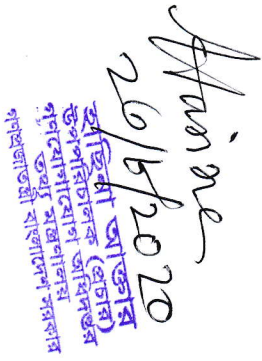 26/6/2020
হাছিনা আক্তার
উপপরিচালক (প্রচার)
গণযোগাযোগ অধিদপ্তর
তথ্য মন্ত্রণালয়
গণপ্রজাতন্ত্রী বাংলাদেশ সরকার